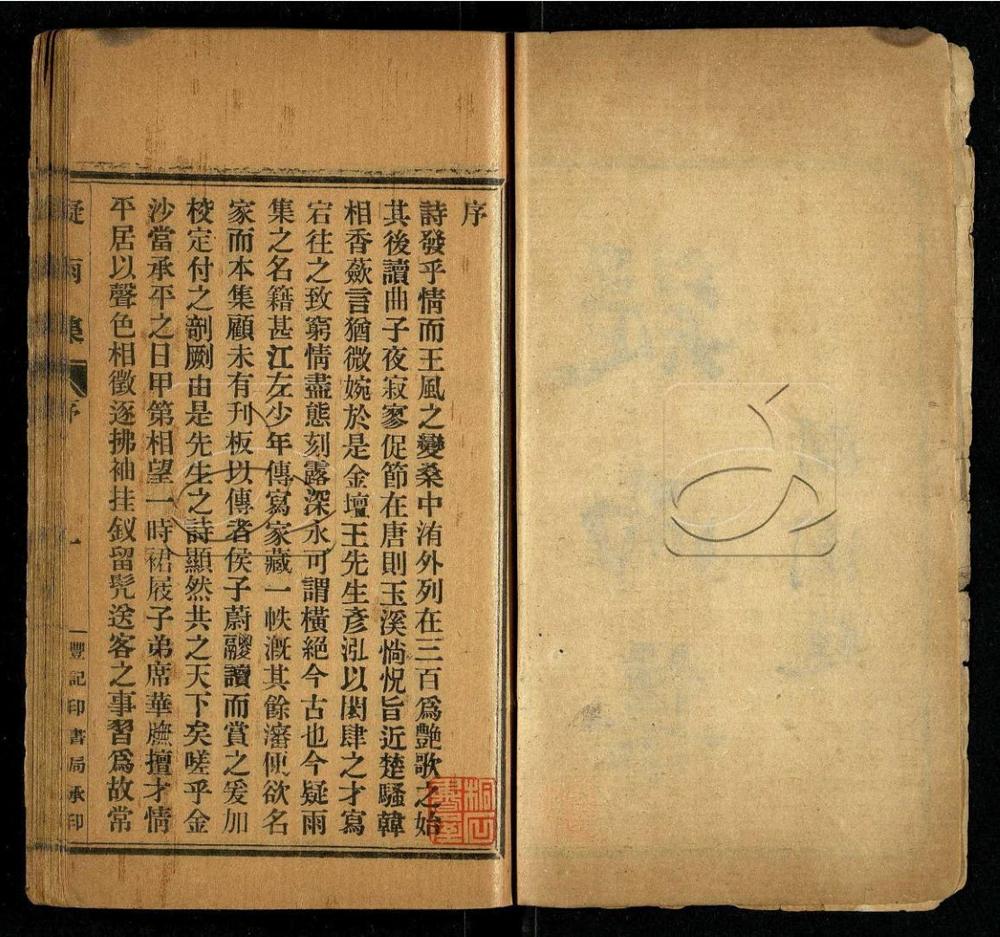 序
詩發乎情而王風之變桑中洧外列在三百爲艷歌之始
其後讀曲子夜寂寥促節在唐則玉溪惝怳旨近楚騷韓
相香歛言猶微婉於是金壇王先生彥泓以閎肆之才寫
宕往之致窮情盡態刻露深永可謂橫絕今古也今疑雨
集之名籍甚江左少年傳寫家藏一帙漑其餘瀋便欲名
家而本集顧未有刊板以傳者侯子蔚䰒讀而賞之爰加
校定付之剞劂由是先生之詩顯然共之天下矣嗟乎金
沙當承平之日甲第相望一時裙屐子弟席華膴擅才情
平居以聲色相徵逐拂袖挂釵留髠送客之事習爲故常
疑雨集 序 一 豐記印書局承印